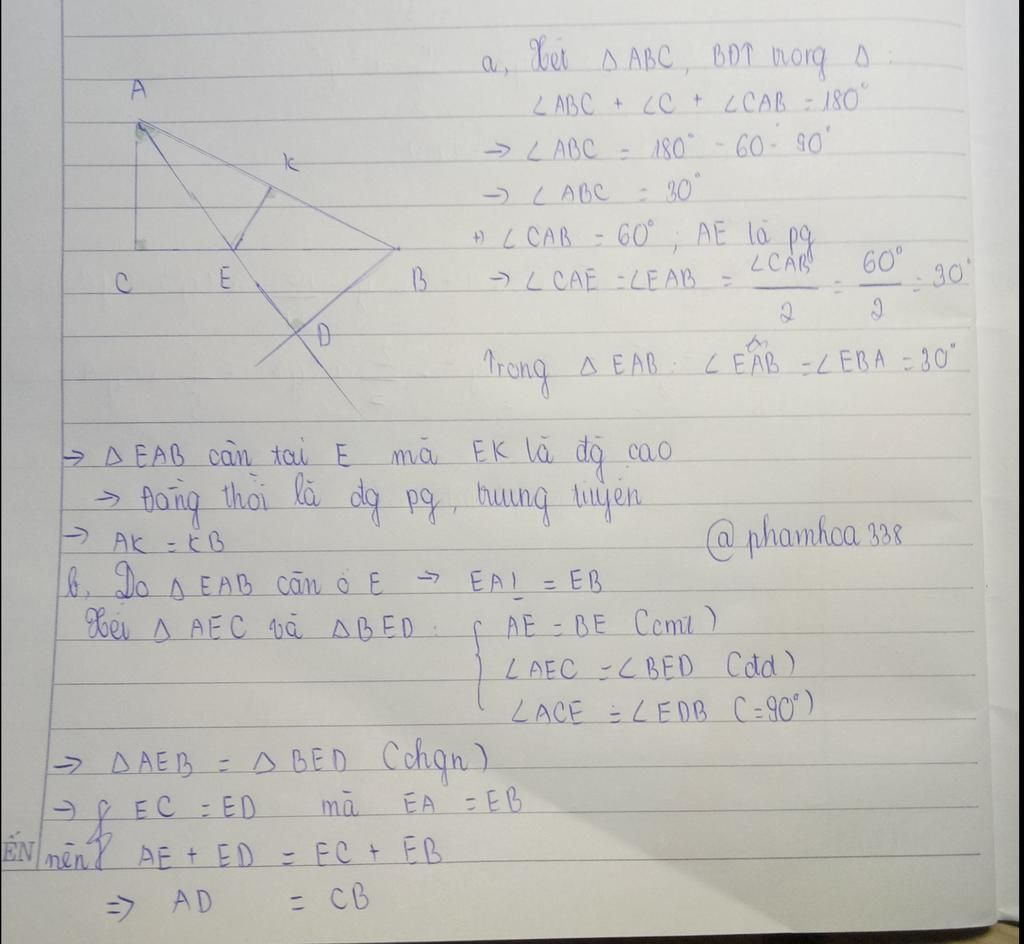 a, Xét Δ ABC, BĐT trong Δ :
∠ABC + ∠C + ∠CAB = 180°
→ ∠ABC = 180° - 60° - 90°
→ ∠ABC = 30°
+) ∠CAB = 60° ; AE là pg
→ ∠CAE = ∠EAB = ∠CAB/2 = 60°/2 = 30°
Trong Δ EAB : ∠EAB = ∠EBA = 30°
A
K
C E B
D
→ Δ EAB cân tại E mà EK là đg cao
→ Đồng thời là đg pg, trung tuyến
→ AK = KB
@phamhoa338
b, Do Δ EAB cân ở E → EA = EB
Xét Δ AEC và Δ BED : { AE = BE (cmt)
∠AEC = ∠BED (đđ)
∠ACE = ∠EDB (=90°)
→ ΔAEB = Δ BED (chgn)
→ { EC = ED mà EA = EB
ẾN
nên AE + ED = EC + EB
=> AD = CB